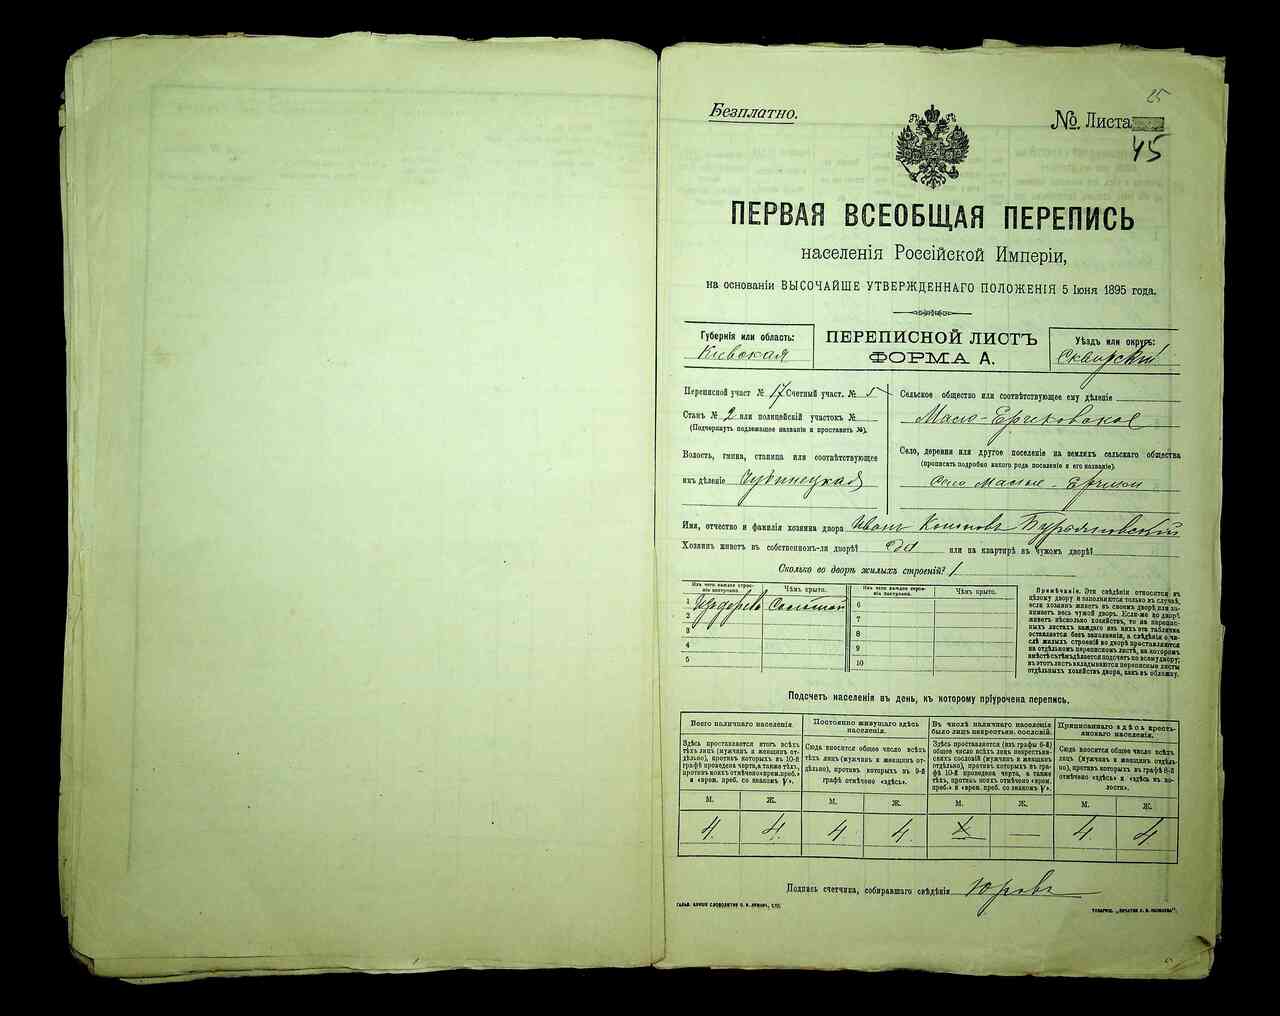 25
Безплатно.
№ Листа
45
ПЕРВАЯ ВСЕОБЩАЯ ПЕРЕПИСЬ
населенія Россійской Имперіи,
на основаніи ВЫСОЧАЙШЕ УТВЕРЖДЕННАГО ПОЛОЖЕНІЯ 5 Іюня 1895 года.
Губернія или область:
Кіевская
ПЕРЕПИСНОЙ ЛИСТЪ
ФОРМА А.
Уѣздъ или округъ:
Сквирскій
Переписной участ № 17 Счетный участ. № 5
Станъ № 2 или полицейскій участокъ №
(Подчеркнуть подлежащее названіе и проставить №).
Волость, гмина, станица или соотвѣтствующее
имъ дѣленіе
Сельское общество или соотвѣтствующее ему дѣленіе
Мало-Ерчиковское
Село, деревня или другое поселеніе на земляхъ сельскаго общества
(прописать подробно какого рода поселеніе и его названіе).
Село Малые-Ерчики
Имя, отчество и фамилія хозяина двора Иванъ
Хозяинъ живетъ въ собственномъ-ли дворѣ? да или на квартирѣ въ чужомъ дворѣ?
Сколько во дворѣ жилыхъ строеній? 1
Изъ чего каждое строеніе построено.
Чѣмъ крыто.
Изъ чего каждое строеніе построено.
Чѣмъ крыто.
1 Соломой
2
3
4
5
6
7
8
9
10
Примѣчаніе. Эти свѣдѣнія относятся къ
цѣлому двору и заполняются только въ случаѣ,
если хозяинъ живетъ въ своемъ дворѣ или занимаетъ
весь чужой дворъ. Если-же во дворѣ
живетъ нѣсколько хозяйствъ, то на переписныхъ
листахъ каждаго изъ нихъ эта табличка
оставляется безъ заполненія, а свѣдѣнія о числѣ
жилыхъ строеній во дворѣ проставляются
на отдѣльномъ переписномъ листѣ, на которомъ
вмѣстѣ съ тѣмъ дѣлается подсчетъ по всему двору;
въ этотъ листъ вкладываются переписные листы
отдѣльныхъ хозяйствъ двора, какъ въ обложку.
Подсчетъ населенія въ день, къ которому пріурочена перепись.
Всего наличнаго населенія.
Здѣсь проставляется итогъ всѣхъ
тѣхъ лицъ (мужчинъ и женщинъ отдѣльно),
противъ которыхъ въ 10-й
графѣ проведена черта, а также тѣхъ,
противъ коихъ отмѣчено «врем. преб.»
и «врем. преб. со знакомъ V».
Постоянно живущаго здѣсь
населенія.
Сюда вносится общее число всѣхъ
тѣхъ лицъ (мужчинъ и женщинъ отдѣльно),
противъ которыхъ въ 9-й
графѣ отмѣчено «здѣсь».
Въ числѣ наличнаго населенія
было лицъ некрестьян. сословій.
Здѣсь проставляется (изъ графы 6-й)
общее число всѣхъ лицъ некрестьянскихъ
сословій (мужчинъ и женщинъ
отдѣльно), противъ которыхъ въ графѣ
10-й проведена черта, а также
тѣхъ, противъ коихъ отмѣчено «врем.
преб.» и «врем. преб. со знакомъ V».
Приписаннаго здѣсь крестьянскаго
населенія.
Сюда вносится общее число всѣхъ
лицъ (мужчинъ и женщинъ отдѣльно),
противъ которыхъ въ графѣ 8-й
отмѣчено «здѣсь» и «здѣсь въ волости».
М. Ж. М. Ж. М. Ж. М. Ж.
4 4 4 4 — 4 4
Подпись счетчика, собиравшаго свѣдѣнія